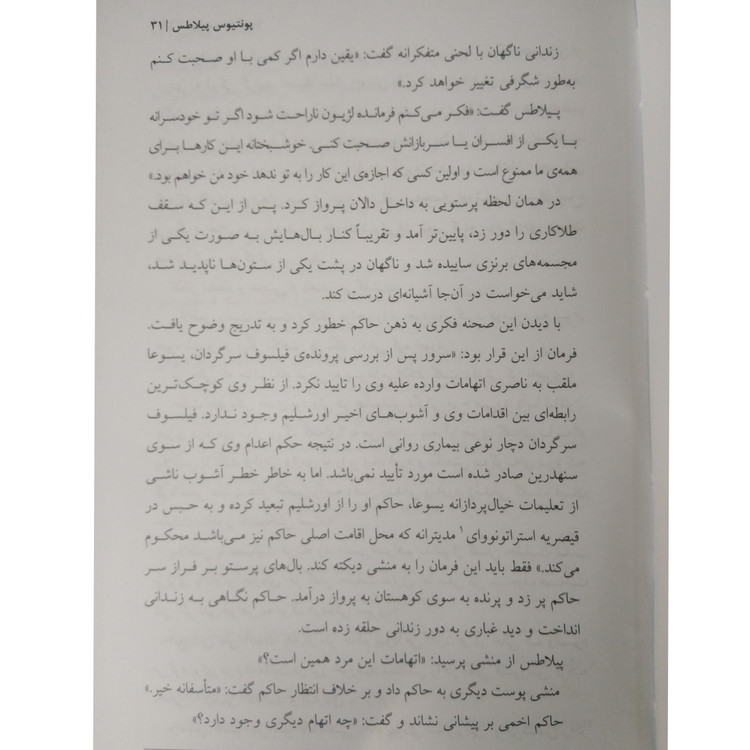 پونتیوس پیلاطس | ۳۱
زندانی ناگهان با لحنی متفکرانه گفت: «یقین دارم اگر کمی با او صحبت کنم
به‌طور شگرفی تغییر خواهد کرد.»
پیلاطس گفت: «فکر می‌کنم فرمانده لژیون ناراحت شود اگر تو خودسرانه
با یکی از افسران یا سربازانش صحبت کنی. خوشبختانه این کارها برای
همه‌ی ما ممنوع است و اولین کسی که اجازه‌ی این کار را به تو ندهد خود من خواهم بود.»
در همان لحظه پرستویی به داخل دالان پرواز کرد. پس از این که سقف
طلاکاری را دور زد، پایین‌تر آمد و تقریباً کنار بال‌هایش به صورت یکی از
مجسمه‌های برنزی ساییده شد و ناگهان در پشت یکی از ستون‌ها ناپدید شد،
شاید می‌خواست در آن‌جا آشیانه‌ای درست کند.
با دیدن این صحنه فکری به ذهن حاکم خطور کرد و به تدریج وضوح یافت.
فرمان از این قرار بود: «سرور پس از بررسی پرونده‌ی فیلسوف سرگردان، یسوعا
ملقب به ناصری اتهامات وارده علیه وی را تایید نکرد. از نظر وی کوچک‌ترین
رابطه‌ای بین اقدامات وی و آشوب‌های اخیر اورشلیم وجود ندارد. فیلسوف
سرگردان دچار نوعی بیماری روانی است. در نتیجه حکم اعدام وی که از سوی
سنهدرین صادر شده است مورد تأیید نمی‌باشد. اما به خاطر خطر آشوب ناشی
از تعلیمات خیال‌پردازانه یسوعا، حاکم او را از اورشلیم تبعید کرده و به حبس در
قیصریه استراتونووای ۱ مدیترانه که محل اقامت اصلی حاکم نیز می‌باشد محکوم
می‌کند.» فقط باید این فرمان را به منشی دیکته کند. بال‌های پرستو بر فراز سر
حاکم پر زد و پرنده به سوی کوهستان به پرواز درآمد. حاکم نگاهی به زندانی
انداخت و دید غباری به دور زندانی حلقه زده است.
پیلاطس از منشی پرسید: «اتهامات این مرد همین است؟»
منشی پوست دیگری به حاکم داد و بر خلاف انتظار حاکم گفت: «متأسفانه خیر.»
حاکم اخمی بر پیشانی نشاند و گفت: «چه اتهام دیگری وجود دارد؟»